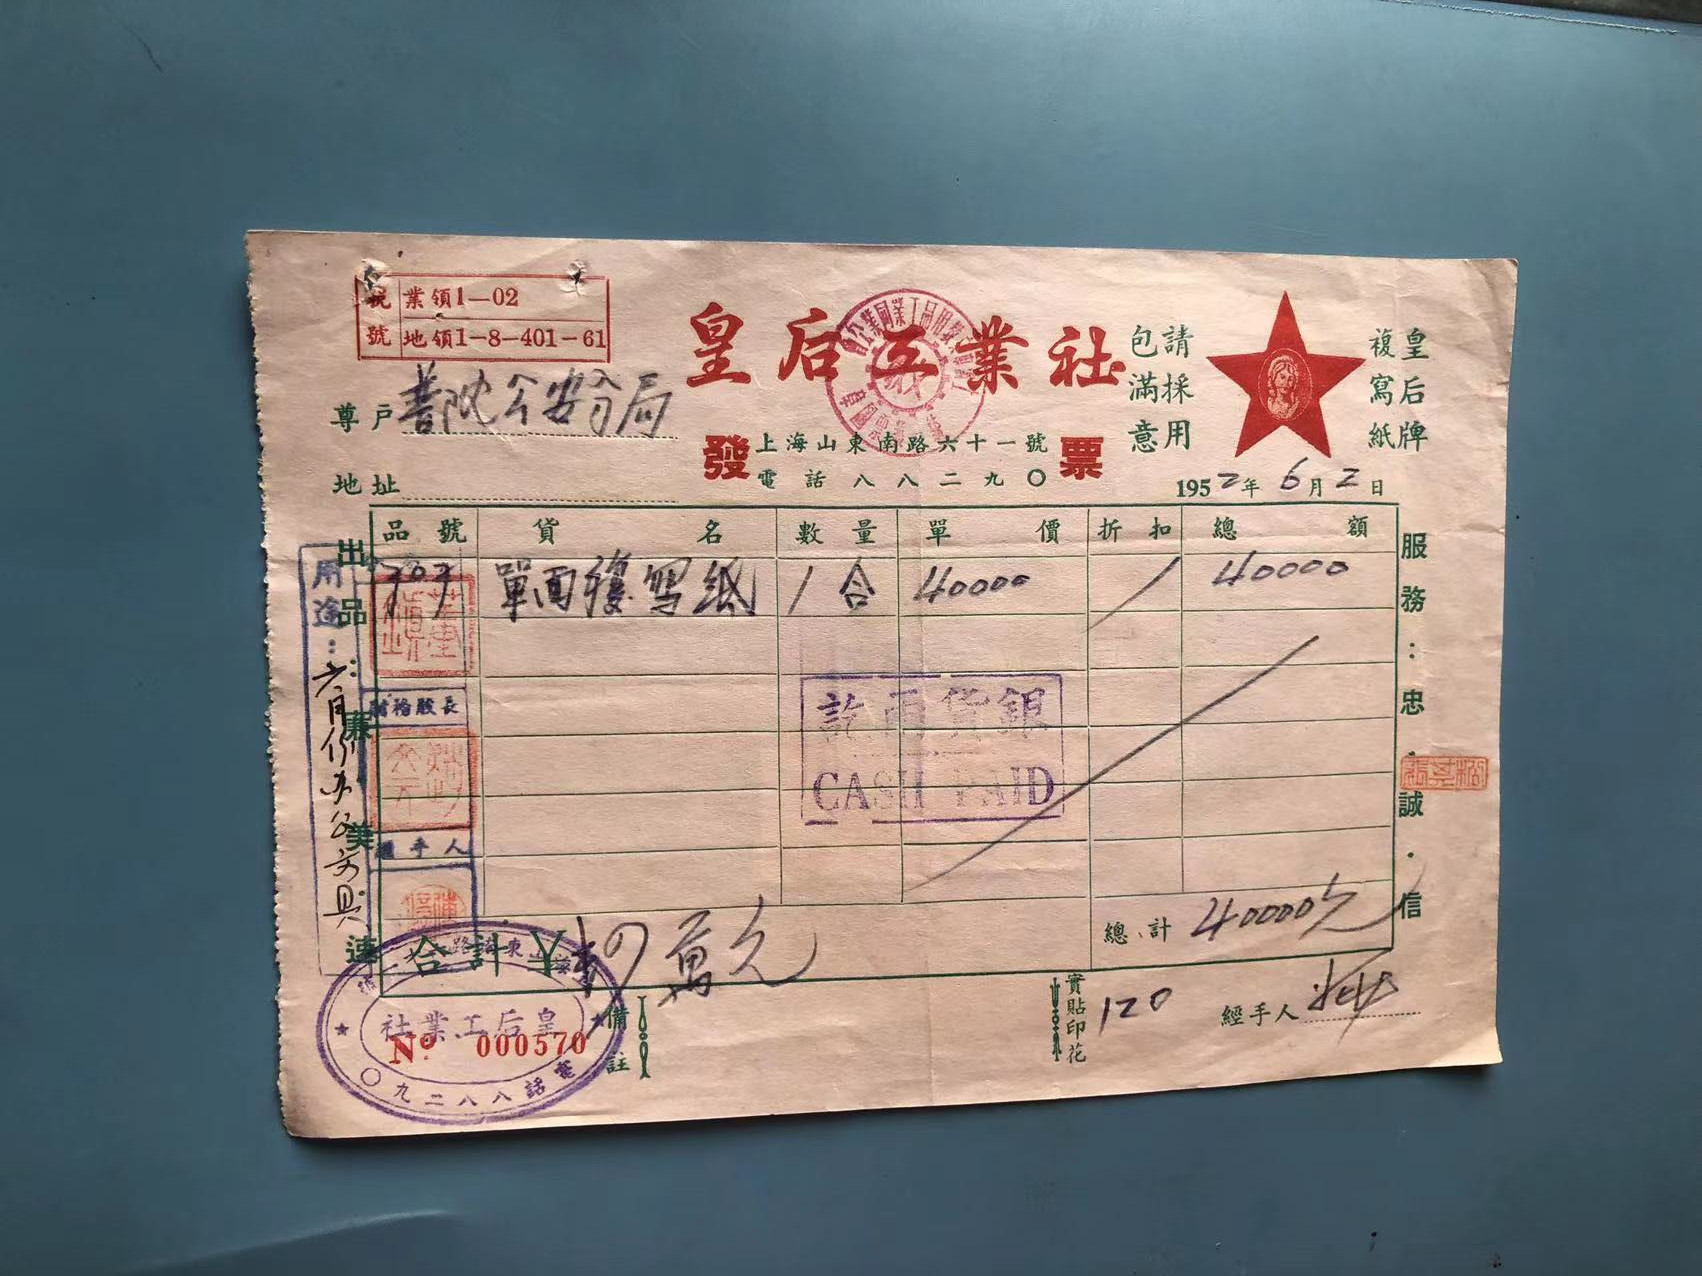 稅號
業領1—02
地領1-8-401-61
皇后工業社
請採用
包滿意
皇后牌
複寫紙
尊戶 普陀公安分局
發票
上海山東南路六十一號
電話八八二九〇
地址
1952年6月2日
品號 貨名 數量 單價 折扣 總額
703 單面複寫紙 1 合 40000 40000
出品：廉．美．速
服務：忠．誠．信
用途：六月份办公文具
財務股長
經手人
訖両貨銀
CASH PAID
總計 40000元
合計￥ 肆萬元
備註
實貼印花 120
經手人
皇后工業社
No 000570
電話八八二九〇